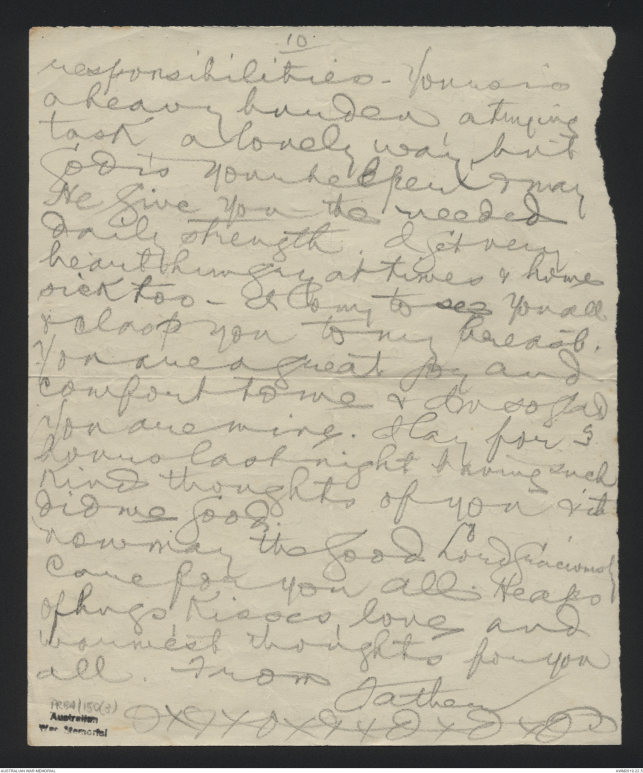 10
responsibilities - Yours is
a heavy burden a trying
task a lonely way, but
God is your helper & may
He give you the needed
daily strength. I get very
heart hungry at times & home
sick too - I long to see you all
& clasp you to my breast.
You are a great joy and
comfort to me & I'm so glad
you are mine. I lay for 3
hours last night having such
kind thoughts of you & it
did me good.
Now may the Good Lord graciously
care for you all. Heaps
of hugs, kisses, love and
warmest thoughts for you
all. From
Father
PR84/150(3)
Australian
War Memorial
AUSTRALIAN WAR MEMORIAL